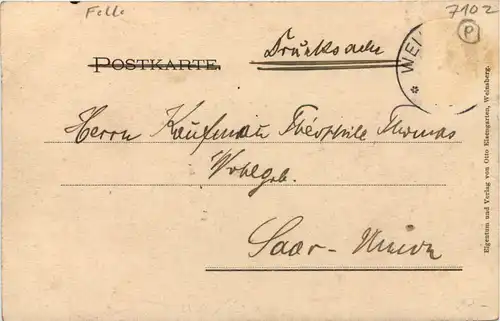 Felle
7102
P
POSTKARTE.
Drucksache
* WEI
Herrn Kaufmann Théophile Thomas
Wohlgeb.
Saar-Union
Eigentum und Verlag von Otto Eisengarten, Weinsberg.